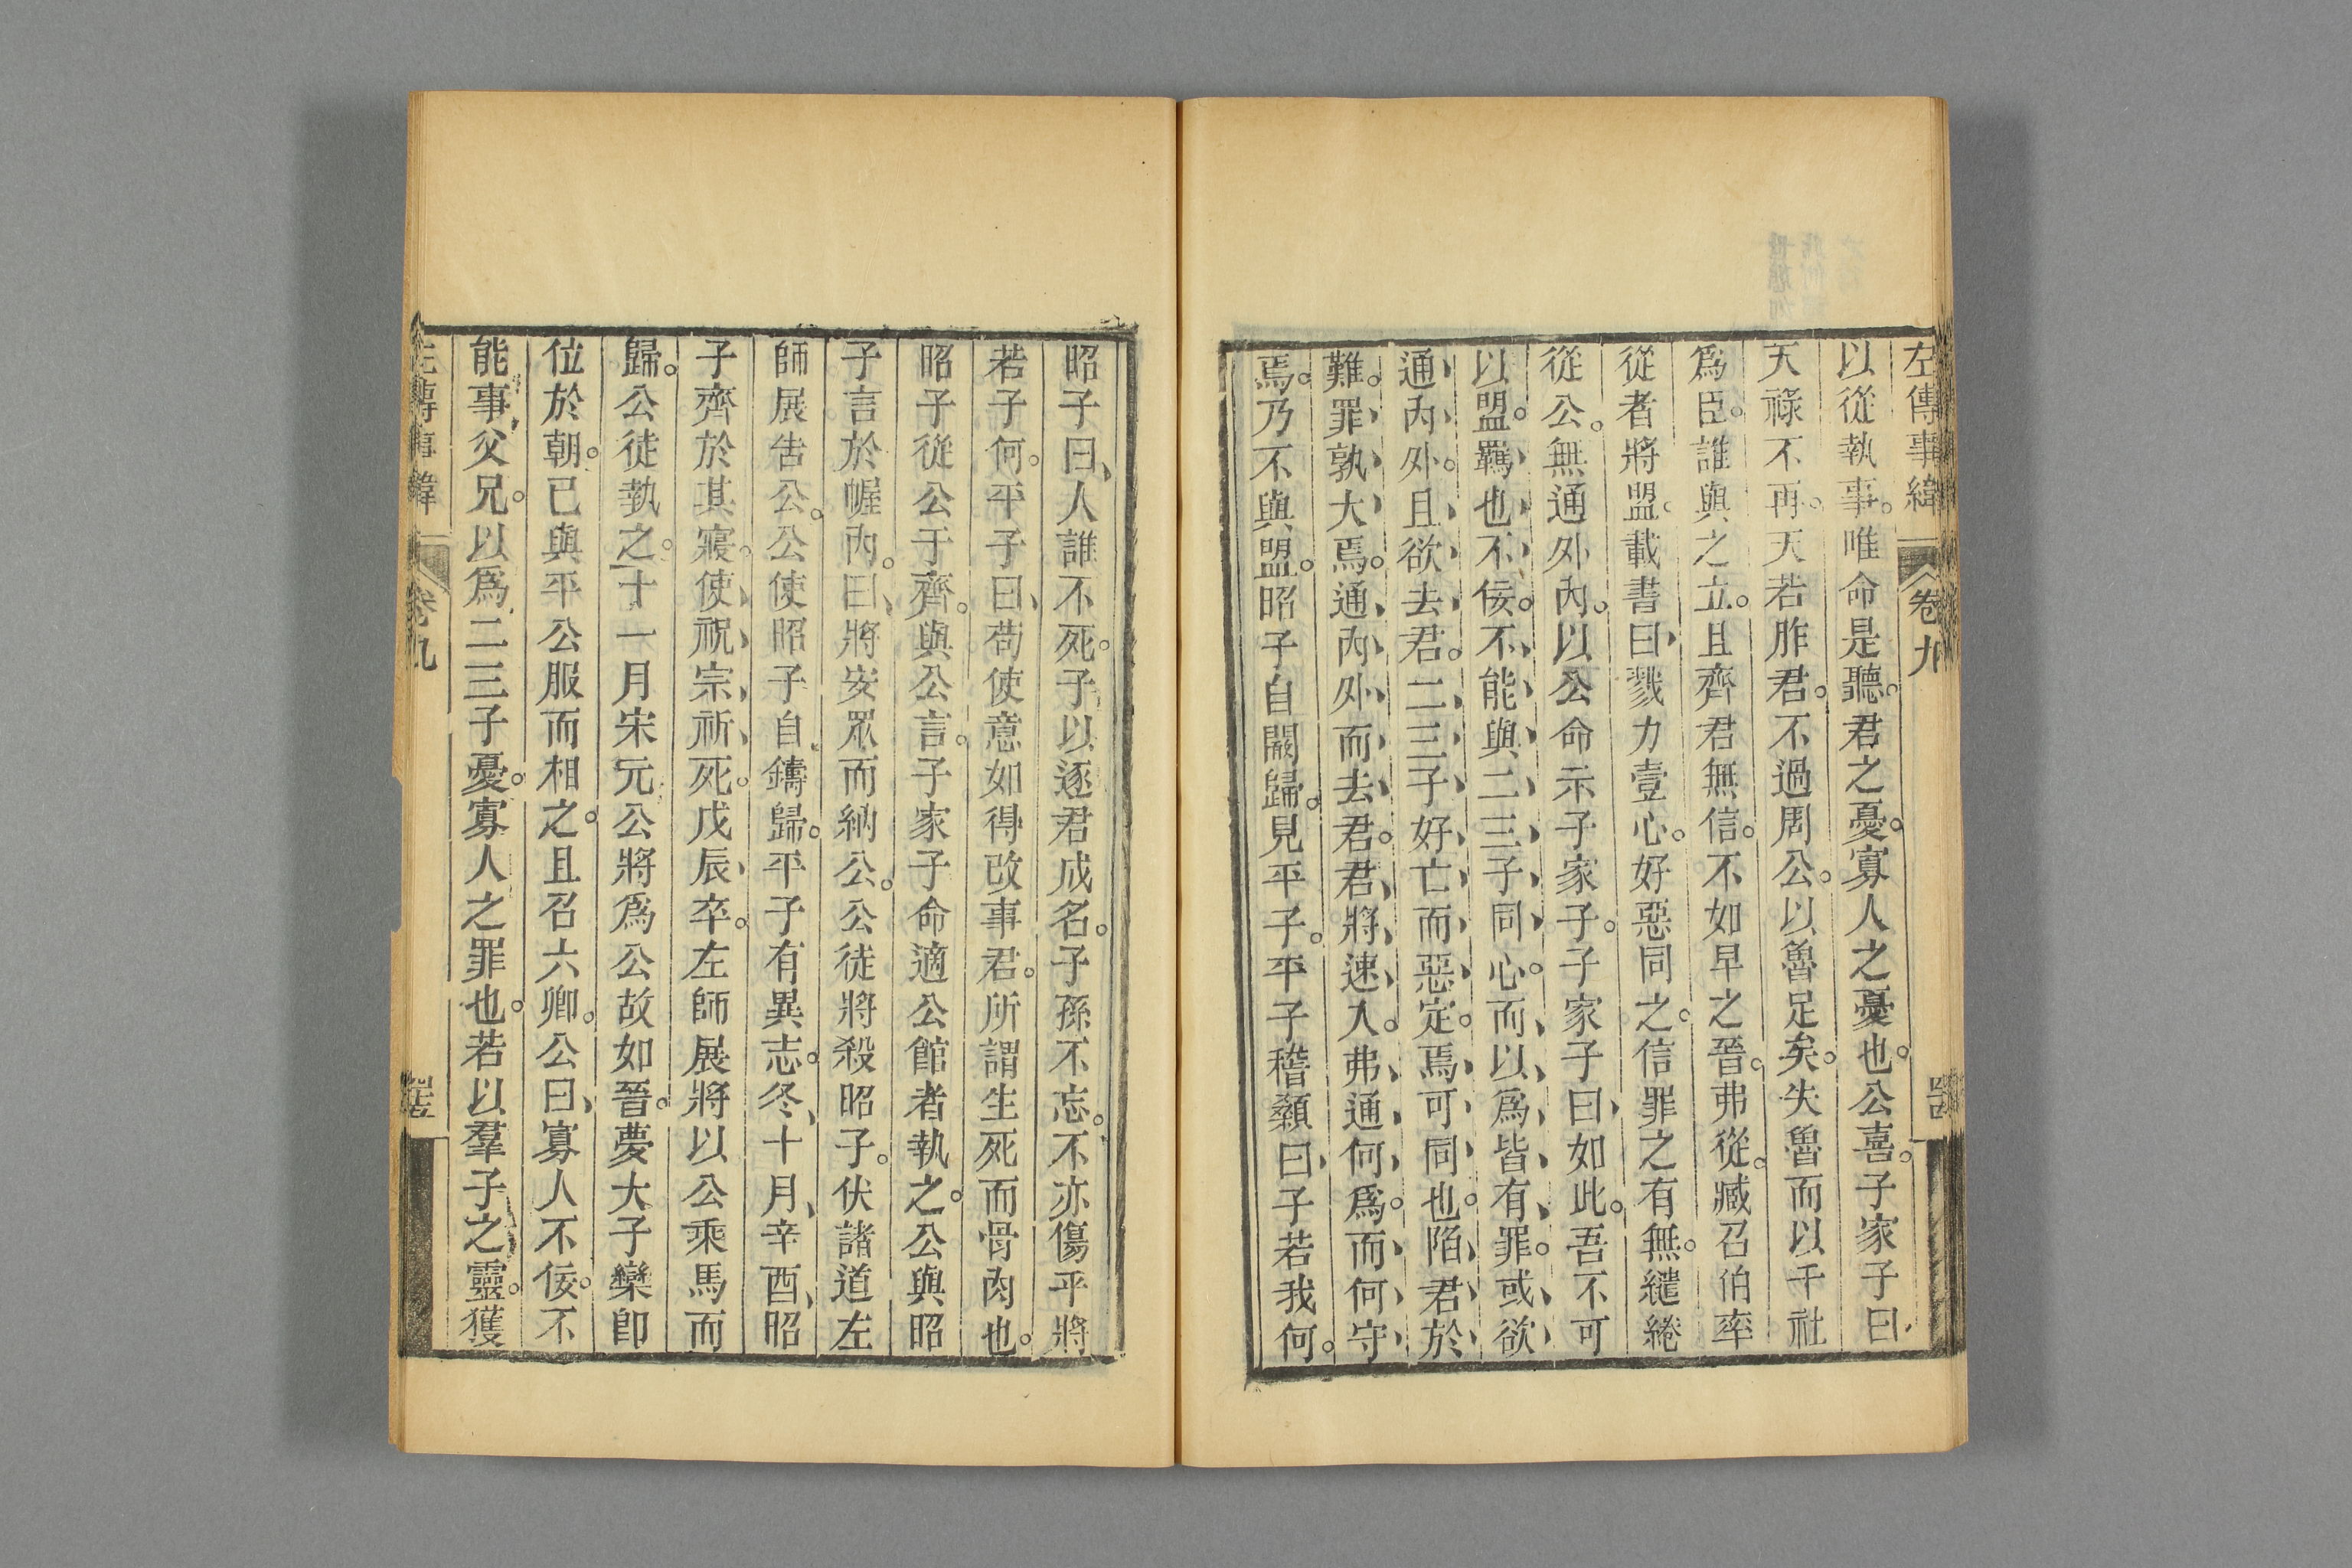 左傳事緯
卷九
以從執事。唯命是聽。君之憂。寡人之憂也。公喜。子家子曰、
天祿不再。天若胙君。不過周公。以魯足矣。失魯而以千社
爲臣。誰與之立。且齊君無信。不如早之晉。弗從。臧召伯率
從者將盟。載書曰、戮力壹心。好惡同之。信罪之有無。繾綣
從公。無通外內。以公命示子家子。子家子曰、如此。吾不可
以盟。羈、也、不、佞。不、能、與、二、三、子、同、心。而、以、爲、皆、有、罪。或、欲、
通、內、外。且、欲、去、君。二、三、子、好、亡、而、惡、定。焉、可、同、也。陷、君、於、
難。罪、孰、大、焉。通、內、外、而、去、君。君、將、速、入。弗、通、何、爲。而、何、守、
焉。乃不與盟。昭子自闞歸。見平子。平子稽顙曰、子若我何。
昭子曰、人誰不死。子以逐君成名。子孫不忘。不亦傷乎將
若子何。平子曰、苟使意如得改事君。所謂生死而骨肉也。
昭子從公于齊。與公言。子家子命適公館者執之。公與昭
子言於幄內。曰、將安眾而納公。公徒將殺昭子。伏諸道左
師展告公。公使昭子自鑄歸。平子有異志。冬、十月、辛酉、昭
子齊於其寢。使、祝、宗、祈、死。戊辰、卒。左師展將以公乘馬而
歸。公徒執之。十一月宋元公將爲公故如晉。夢大子欒卽
位於朝。已與平公服而相之。且召六卿。公曰、寡人不佞。不
能事父兄。以爲二三子憂。寡人之罪也。若以羣子之靈。獲
左傳事緯
卷九